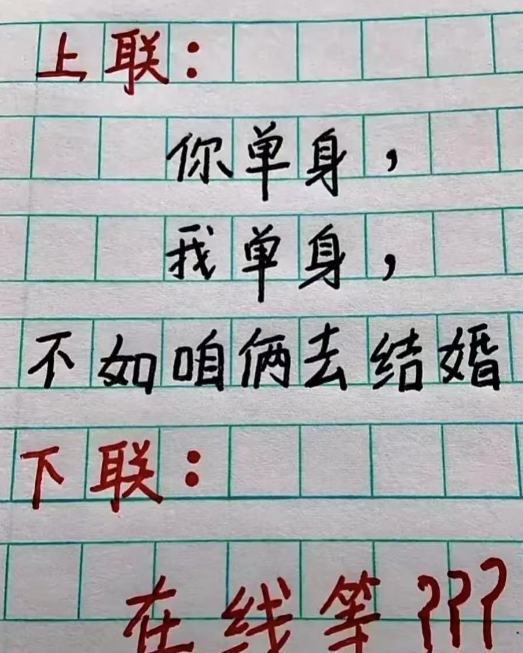 上联：
你单身，
我单身，
不如咱俩去结婚
下联：
在线等???